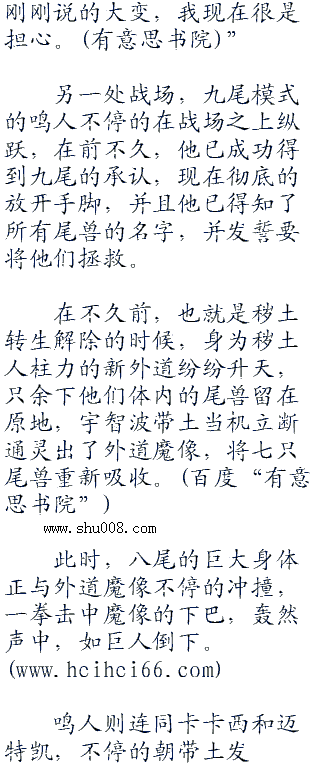 刚刚说的大变，我现在很是
担心。(有意思书院)”
另一处战场，九尾模式
的鸣人不停的在战场之上纵
跃，在前不久，他已成功得
到九尾的承认，现在彻底的
放开手脚，并且他已得知了
所有尾兽的名字，并发誓要
将他们拯救。
在不久前，也就是秽土
转生解除的时候，身为秽土
人柱力的新外道纷纷升天，
只余下他们体内的尾兽留在
原地，宇智波带土当机立断
通灵出了外道魔像，将七只
尾兽重新吸收。(百度“有意
思书院”)
www.shu008.com
此时，八尾的巨大身体
正与外道魔像不停的冲撞，
一拳击中魔像的下巴，轰然
声中，如巨人倒下。
(www.hcihci66.com)
鸣人则连同卡卡西和迈
特凯，不停的朝带土发